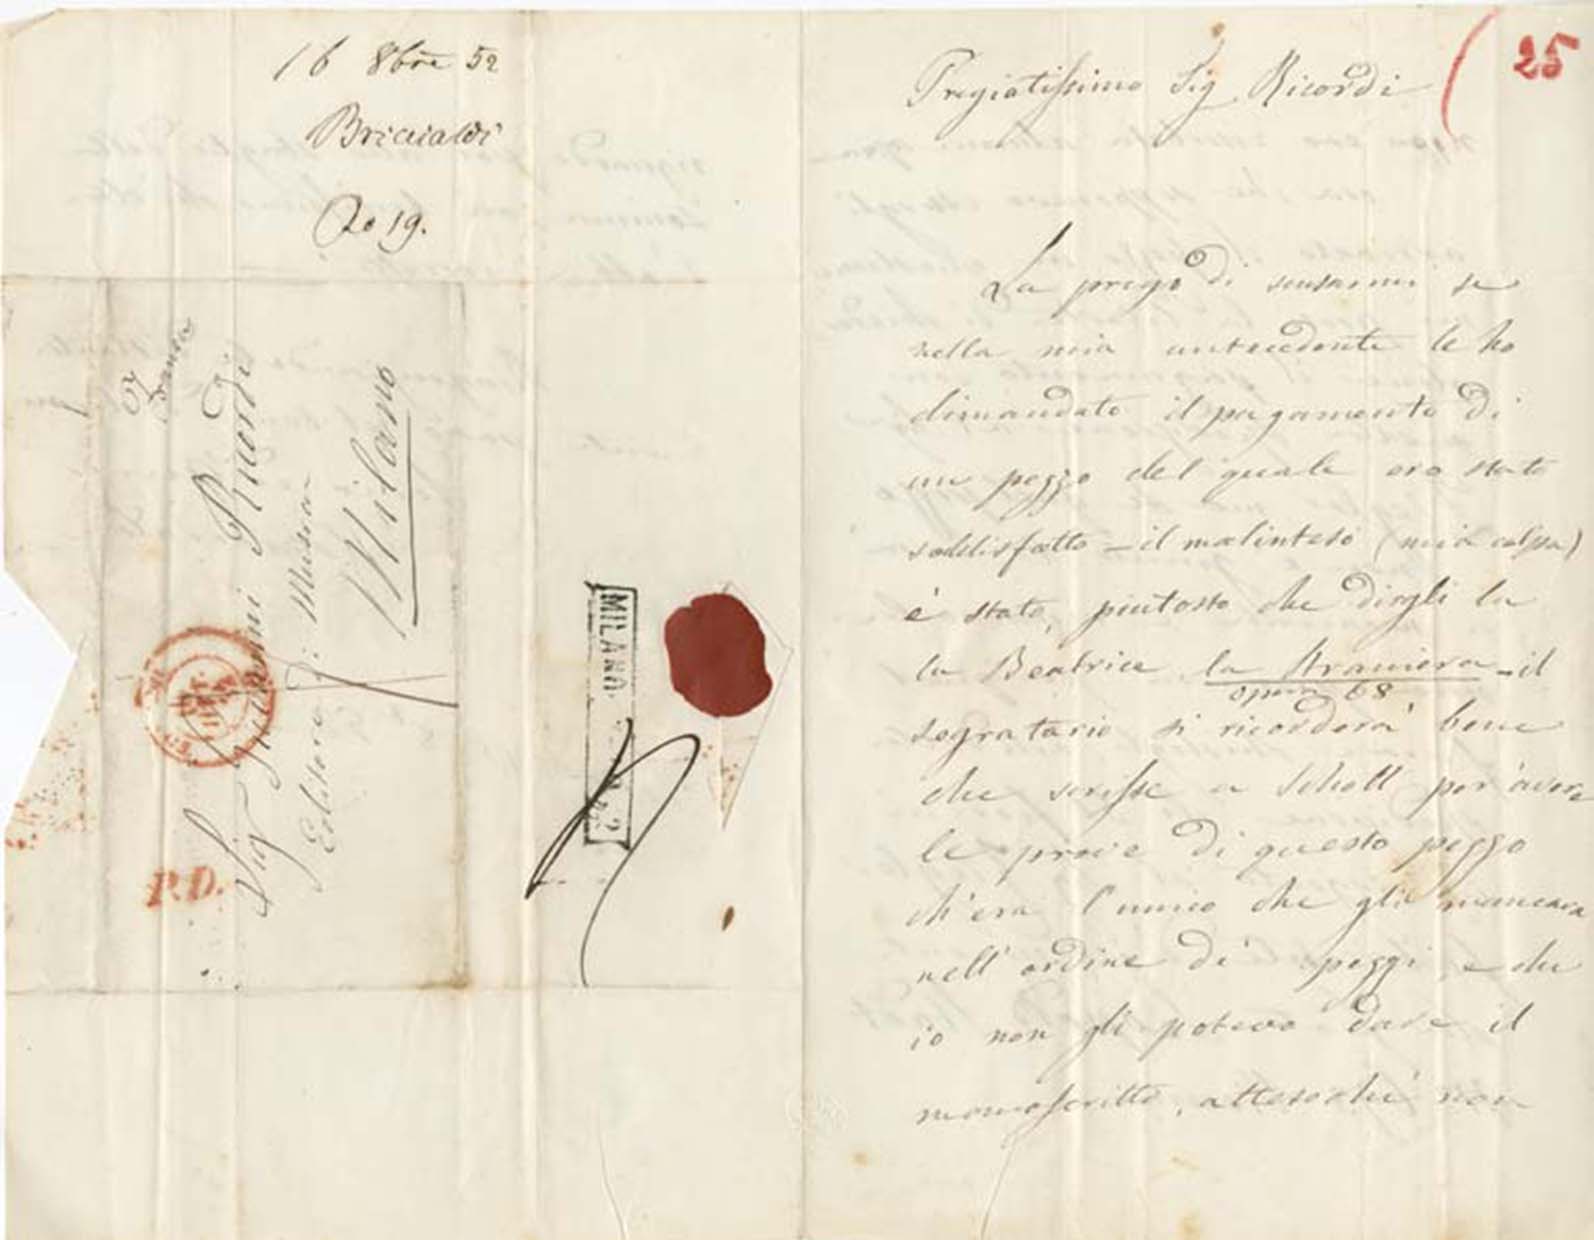 16 8bre 52
Briccialdi
Ro 19.
Franca
Sig Giovanni Ricordi
Editore di Musica
Milano
P.D.
MILANO
25
Pregiatissimo Sig Ricordi
La prego di scusarmi se
nella mia antecedente le ho
dimandato il pagamento di
un pezzo del quale ero stato
soddisfatto – il malinteso (mia colpa)
è stato, piutosto che dirgli la
la Beatrice la Straniera – il
opera 68
segratario si ricorderà bene
che scrisse a Schott per avere
le prove di questo pezzo
ch'era l'unico che gli mancava
nell'ordine di pezzi e che
io non gli poteva dare il
manoscritto, attesochè non